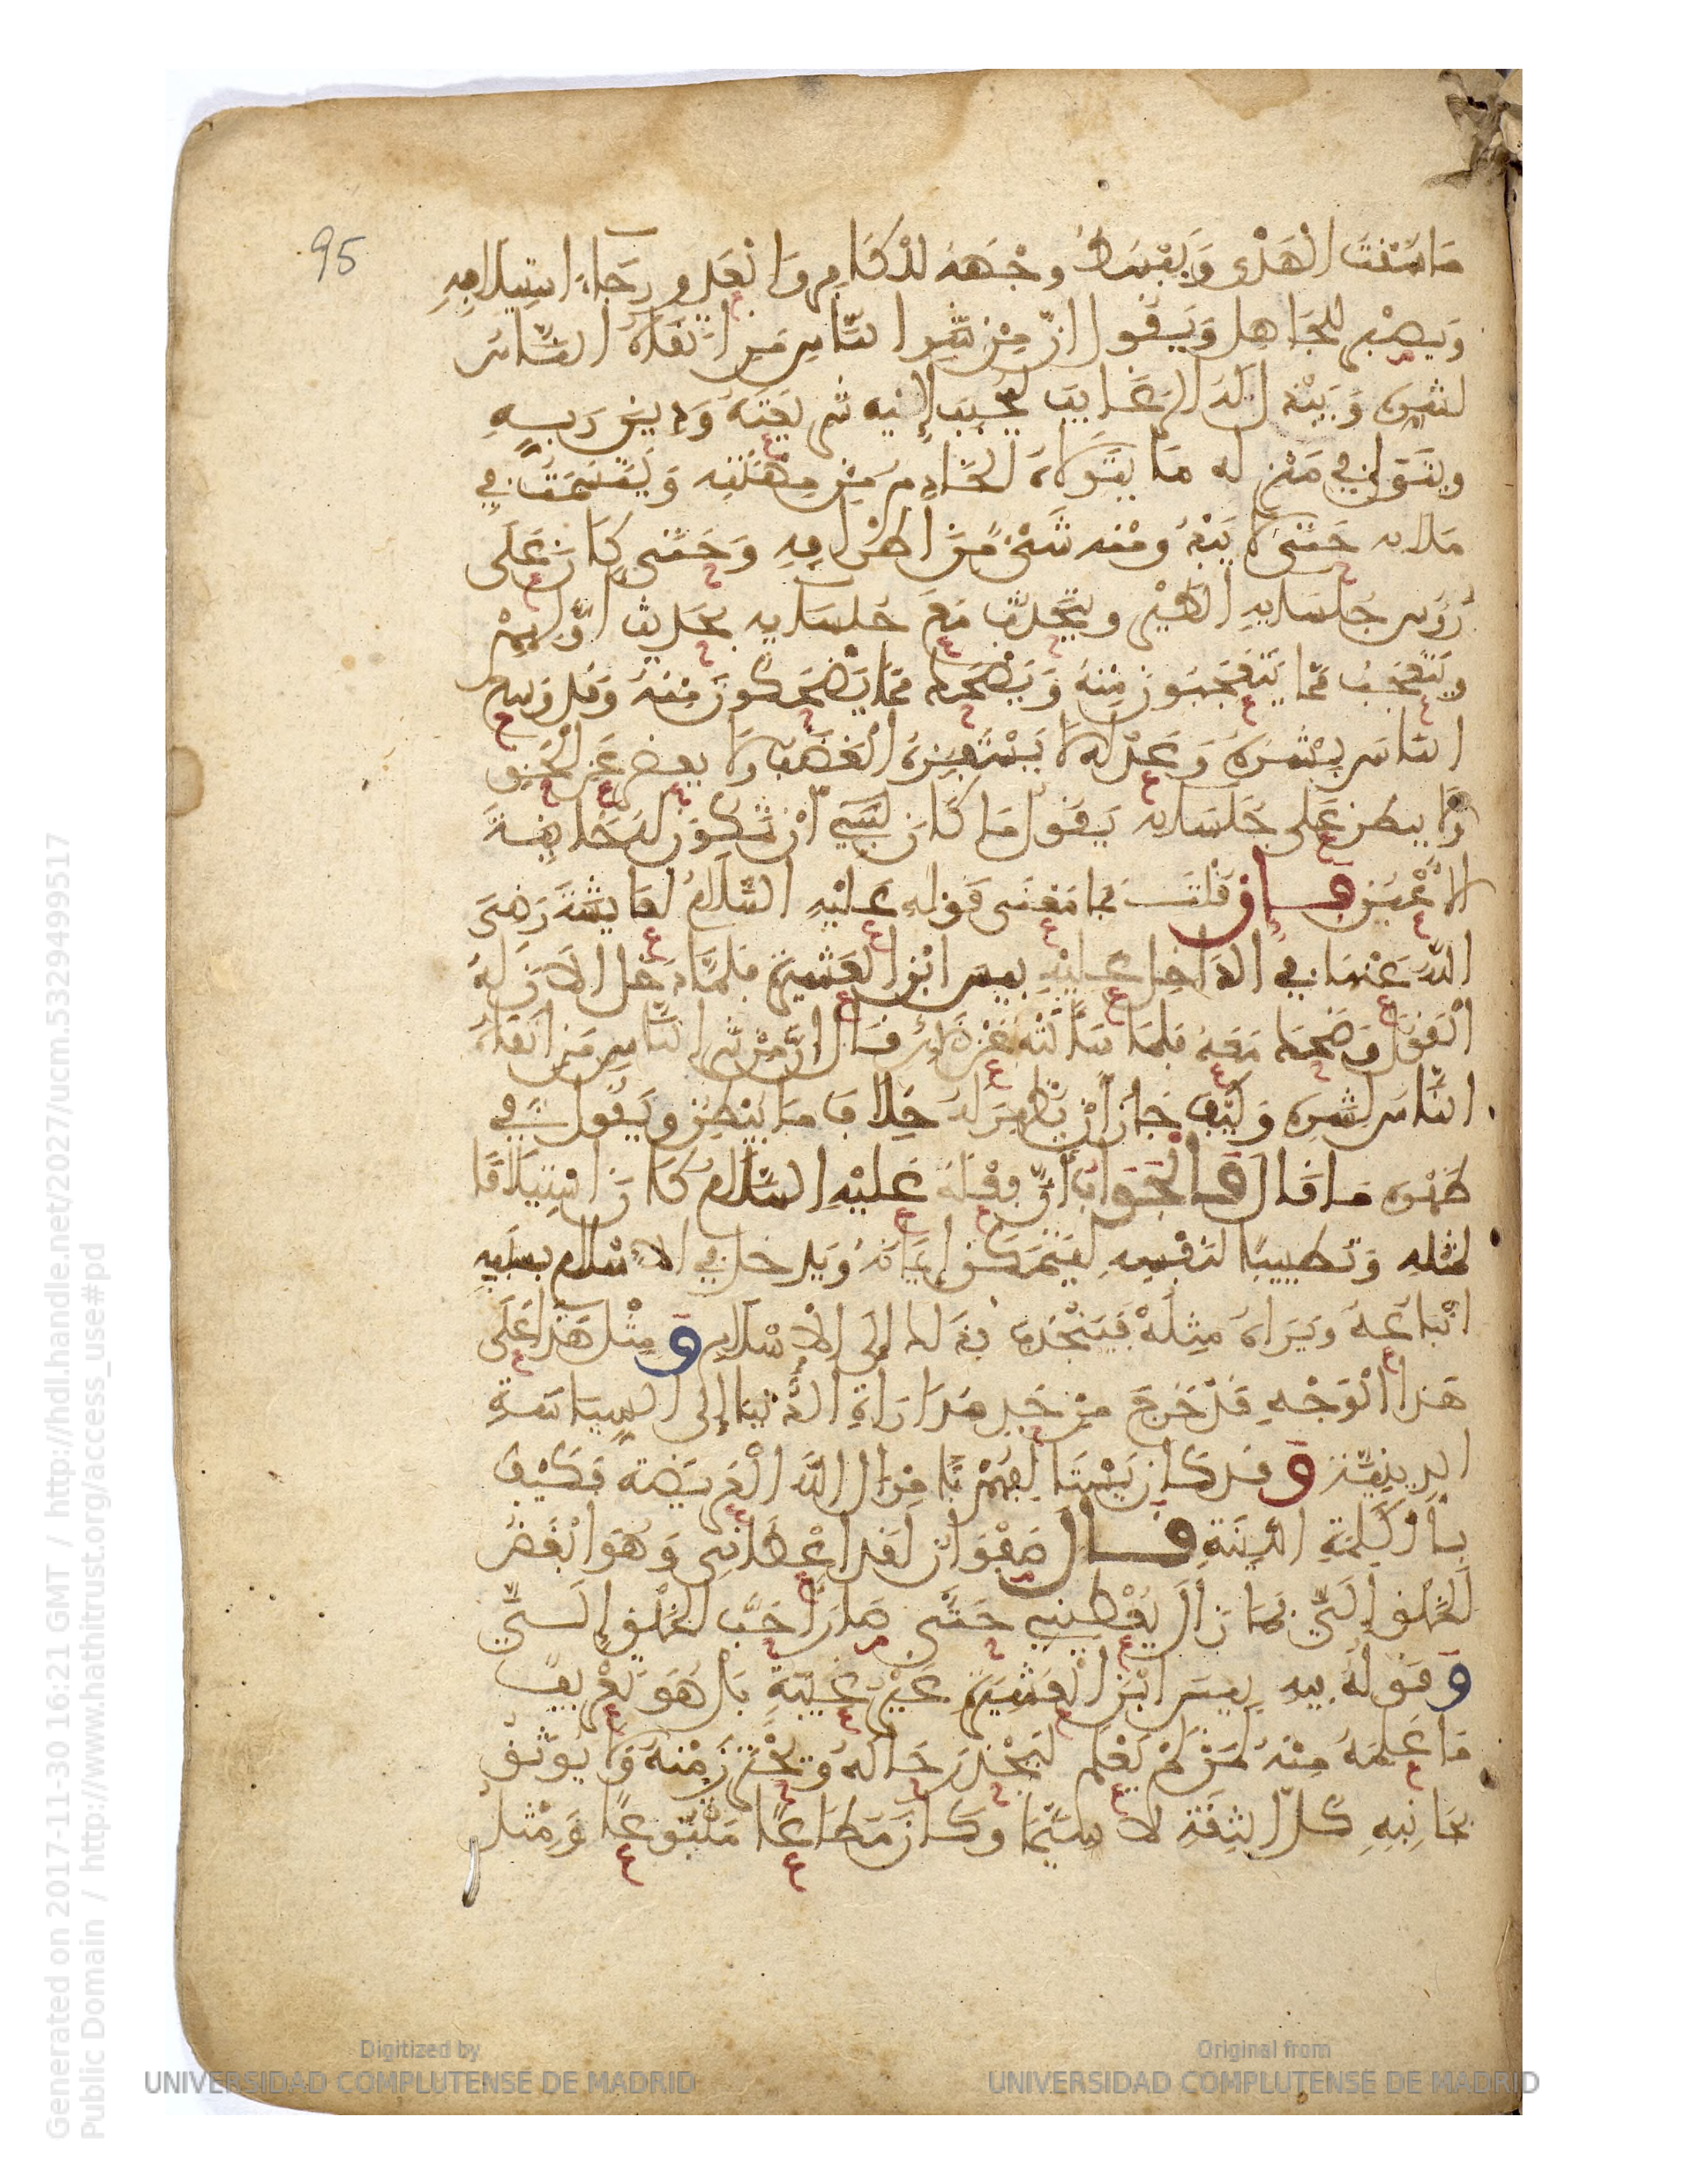 95
ما شئت الهدي ويبسط وجهه للكافر والعدو رجاء استيلافه
ويصبر للجاهل ويقول إن من شر الناس من اتقاه الناس
لشره ويبذل له الرغايب ليحبب إليه شريعته ودين ربه
ويتولى في منزله ما يتولاه الخادم من مهنته ويتسمت في
ملايه حتى لا يبدو منه شيء من أطرافه وحتى كان على
رؤس جلسايه الطير ويتحدث مع جلسايه بحديث أولهم
ويتعجب مما يتعجبون منه ويضحك مما يضحكون منه وقد وسع
الناس بشره وعدله لا يستفزه الغضب ولا يقصر عن الحق
ولا يبطن على جلسايه يقول ما كان لنبي أن تكون له خاينة
الأعين فإن قلت فما معنى قوله عليه السلام لعايشة رضي
الله عنها في الداخل عليه بيس ابن العشيرة فلما دخل الان له
القول وضحك معه فلما سألته عن ذلك قال إن من شر الناس من اتقاه
الناس لشره وكيف جاز أن يظهر له خلاف ما يبطن ويقول في
ظهره ما قال فالجواب أن فعله عليه السلام كان استيلافا
لمثله وتطييبا لنفسه ليتمكن إيمانه ويدخل في الإسلام بسببه
اتباعه ويراه مثله فينجذب بذلك إلى الإسلام ومثل هذا على
هذا الوجه قد خرج من حد مداراة الدنيا إلى السياسة
الدينية وقد كان يستألفهم بأموال الله العريضة فكيف
بالكلمة اللينة قال صفوان لقد أعطاني وهو أبغض
الخلق إلي فما زال يعطيني حتى صار أحب الخلق إلي
وقوله فيه بيس ابن العشيرة غير غيبة بل هو تعريف
ما علمه منه لمن لم يعلم ليحذر حاله ويحترز منه ولا يوثق
بجانبه كل الثقة لا سيما وكان مطاعا متبوعا ومثل
Generated on 2017-11-30 16:21 GMT / http://hdl.handle.net/2027/ucm.5329499517
Public Domain / http://www.hathitrust.org/access_use#pd
Digitized by
UNIVERSIDAD COMPLUTENSE DE MADRID
Original from
UNIVERSIDAD COMPLUTENSE DE MADRID